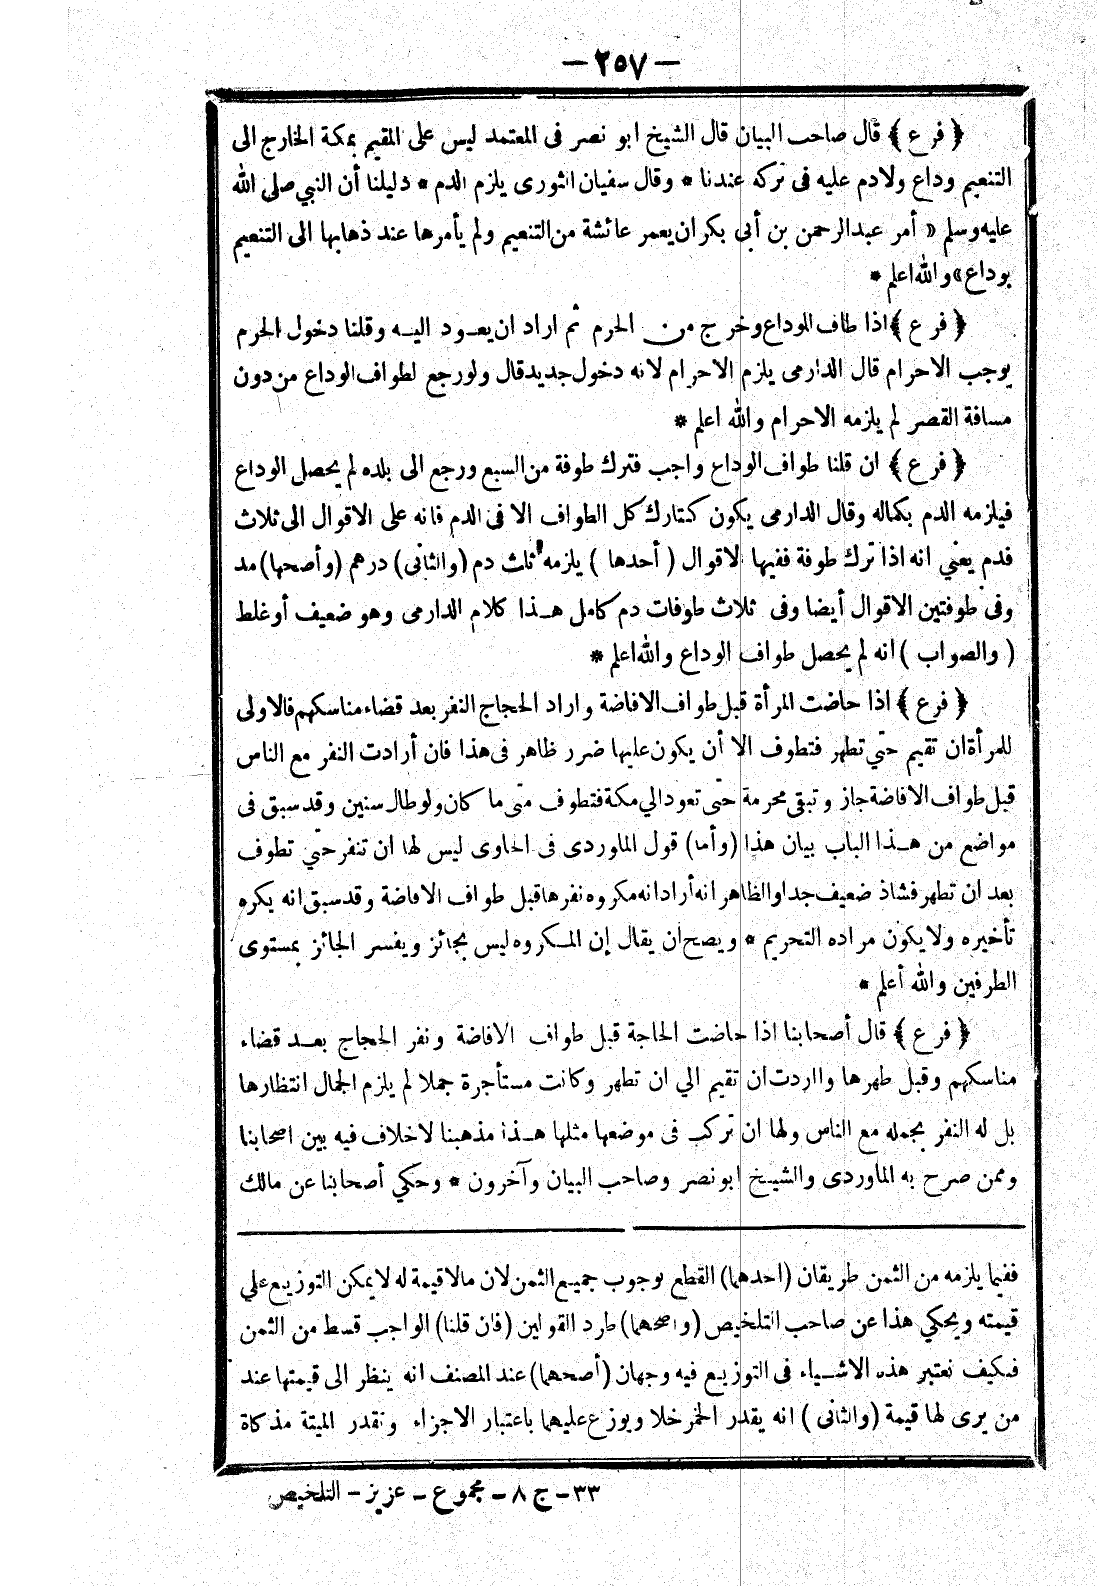 — ٢٥٧ —
﴿ فرع ﴾ قال صاحب البيان قال الشيخ ابو نصر فى المعتمد ليس على المقيم بمكة الخارج الى
التنعيم وداع ولادم عليه فى تركه عندنا * وقال سفيان الثورى يلزم الدم * دليلنا أن النبي صلى الله
عليه وسلم « أمر عبدالرحمن بن أبى بكر ان يعمر عائشة من التنعيم ولم يأمرها عند ذهابها الى التنعيم
بوداع» والله اعلم *
﴿ فرع ﴾ اذا طاف الوداع وخرج من الحرم ثم اراد ان يعود اليه وقلنا دخول الحرم
يوجب الاحرام قال الدارمى يلزم الاحرام لانه دخول جديد قال ولو رجع لطواف الوداع من دون
مسافة القصر لم يلزمه الاحرام والله اعلم *
﴿ فرع ﴾ ان قلنا طواف الوداع واجب فترك طوفة من السبع ورجع الى بلده لم يحصل الوداع
فيلزمه الدم بكماله وقال الدارمى يكون كتارك كل الطواف الا فى الدم فانه على الاقوال الى ثلاث
فدم يعني انه اذا ترك طوفة ففيها الاقوال ( أحدها ) يلزمه ثلث دم (والثانى) درهم (وأصحها) مد
وفى طوفتين الاقوال أيضا وفى ثلاث طوفات دم كامل هذا كلام الدارمى وهو ضعيف أو غلط
( والصواب ) انه لم يحصل طواف الوداع والله اعلم *
﴿ فرع ﴾ اذا حاضت المرأة قبل طواف الافاضة واراد الحجاج النفر بعد قضاء مناسكهم فالاولى
للمرأة ان تقيم حتى تطهر فتطوف الا أن يكون عليها ضرر ظاهر فى هذا فان أرادت النفر مع الناس
قبل طواف الافاضة جاز وتبقى محرمة حتى تعود الي مكة فتطوف متى ما كان ولو طال سنين وقد سبق فى
مواضع من هذا الباب بيان هذا (وأما) قول الماوردى فى الحاوى ليس لها ان تنفر حتى تطوف
بعد ان تطهر فشاذ ضعيف جدا والظاهر انه أراد انه مكروه نفرها قبل طواف الافاضة وقد سبق انه يكره
تأخيره ولا يكون مراده التحريم * ويصح ان يقال إن المكروه ليس بجائز ويفسر الجائز بمستوى
الطرفين والله أعلم *
﴿ فرع ﴾ قال أصحابنا اذا حاضت الحاجة قبل طواف الافاضة ونفر الحجاج بعد قضاء
مناسكهم وقبل طهرها واردت ان تقيم الي ان تطهر وكانت مستأجرة جملا لم يلزم الجمال انتظارها
بل له النفر بجمله مع الناس ولها ان تركب فى موضعها مثلها هذا مذهبنا لا خلاف فيه بين اصحابنا
وممن صرح به الماوردى والشيخ ابو نصر وصاحب البيان وآخرون * وحكي أصحابنا عن مالك
ففيما يلزمه من الثمن طريقان (احدهما) القطع بوجوب جميع الثمن لان مالا قيمة له لا يمكن التوزيع علي
قيمته ويحكي هذا عن صاحب التلخيص (واصحهما) طرد القولين (فان قلنا) الواجب قسط من الثمن
فكيف نعتبر هذه الاشياء فى التوزيع فيه وجهان (أصحهما) عند المصنف انه ينظر الى قيمتها عند
من يرى لها قيمة (والثانى ) انه يقدر الخمر خلا ويوزع عليهما باعتبار الاجزاء وتقدر الميتة مذكاة
٣٣ - ج ٨ - مجموع - عزيز - التلخيص